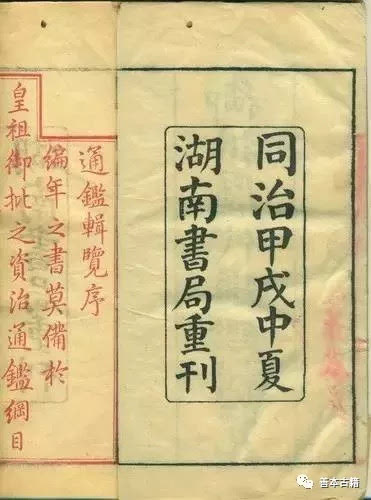 同治甲戌中夏
湖南書局重刊
通鑑輯覽序
編年之書莫備於
皇祖御批之資治通鑑綱目
善本古籍